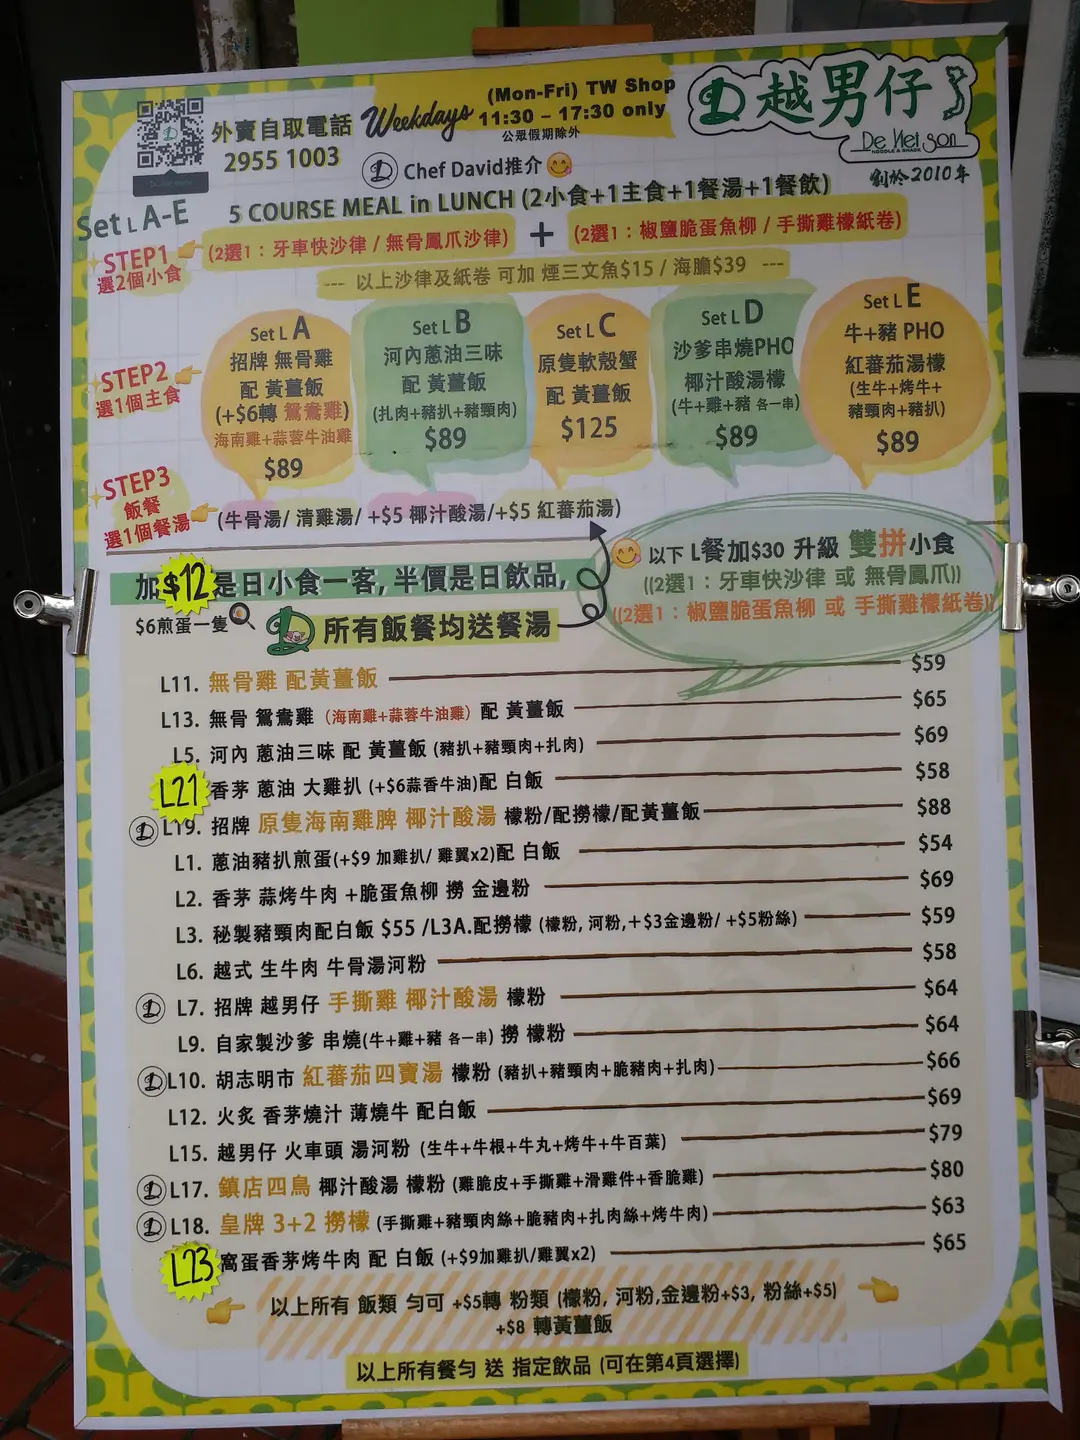 外賣自取電話
2955 1003
Weekdays
(Mon-Fri) TW Shop
11:30 – 17:30 only
公眾假期除外
越男仔
De Nei Son
NOODLE & SNACK
創於2010年
Chef David推介
Set L A-E
5 COURSE MEAL in LUNCH (2小食+1主食+1餐湯+1餐飲)
STEP1
選2個小食
(2選1：牙車快沙律 / 無骨鳳爪沙律) + (2選1：椒鹽脆蛋魚柳 / 手撕雞檬紙卷)
--- 以上沙律及紙卷 可加 煙三文魚$15 / 海膽$39 ---
STEP2
選1個主食
Set L A
招牌 無骨雞
配 黃薑飯
(+$6轉 鴛鴦雞)
海南雞+蒜蓉牛油雞
$89
Set L B
河內蔥油三味
配 黃薑飯
(扎肉+豬扒+豬頸肉)
$89
Set L C
原隻軟殼蟹
配 黃薑飯
$125
Set L D
沙爹串燒PHO
椰汁酸湯檬
(牛+雞+豬 各一串)
$89
Set L E
牛+豬 PHO
紅蕃茄湯檬
(生牛+烤牛+
豬頸肉+豬扒)
$89
STEP3
飯餐
選1個餐湯
(牛骨湯/ 清雞湯/ +$5 椰汁酸湯/+$5 紅蕃茄湯)
以下 L餐加$30 升級 雙拼小食
((2選1：牙車快沙律 或 無骨鳳爪))
((2選1：椒鹽脆蛋魚柳 或 手撕雞檬紙卷))
加$12是日小食一客, 半價是日飲品,
$6煎蛋一隻
所有飯餐均送餐湯
L11. 無骨雞 配黃薑飯 $59
L13. 無骨 鴛鴦雞 (海南雞+蒜蓉牛油雞) 配 黃薑飯 $65
L5. 河內 蔥油三味 配 黃薑飯 (豬扒+豬頸肉+扎肉) $69
L21 香茅 蔥油 大雞扒 (+$6蒜香牛油)配 白飯 $58
L19. 招牌 原隻海南雞脾 椰汁酸湯 檬粉/配撈檬/配黃薑飯 $88
L1. 蔥油豬扒煎蛋(+$9 加雞扒/ 雞翼x2)配 白飯 $54
L2. 香茅 蒜烤牛肉 +脆蛋魚柳 撈 金邊粉 $69
L3. 秘製豬頸肉配白飯 $55 /L3A.配撈檬 (檬粉, 河粉,+$3金邊粉/ +$5粉絲) $59
L6. 越式 生牛肉 牛骨湯河粉 $58
L7. 招牌 越男仔 手撕雞 椰汁酸湯 檬粉 $64
L9. 自家製沙爹 串燒(牛+雞+豬 各一串) 撈 檬粉 $64
L10. 胡志明市 紅蕃茄四寶湯 檬粉 (豬扒+豬頸肉+脆豬肉+扎肉) $66
L12. 火炙 香茅燒汁 薄燒牛 配白飯 $69
L15. 越男仔 火車頭 湯河粉 (生牛+牛根+牛丸+烤牛+牛百葉) $79
L17. 鎮店四鳥 椰汁酸湯 檬粉 (雞脆皮+手撕雞+滑雞件+香脆雞) $80
L18. 皇牌 3+2 撈檬 (手撕雞+豬頸肉絲+脆豬肉+扎肉絲+烤牛肉) $63
L23 窩蛋香茅烤牛肉 配 白飯 (+$9加雞扒/雞翼x2) $65
以上所有 飯類 勻可 +$5轉 粉類 (檬粉, 河粉,金邊粉+$3, 粉絲+$5)
+$8 轉黃薑飯
以上所有餐勻 送 指定飲品 (可在第4頁選擇)